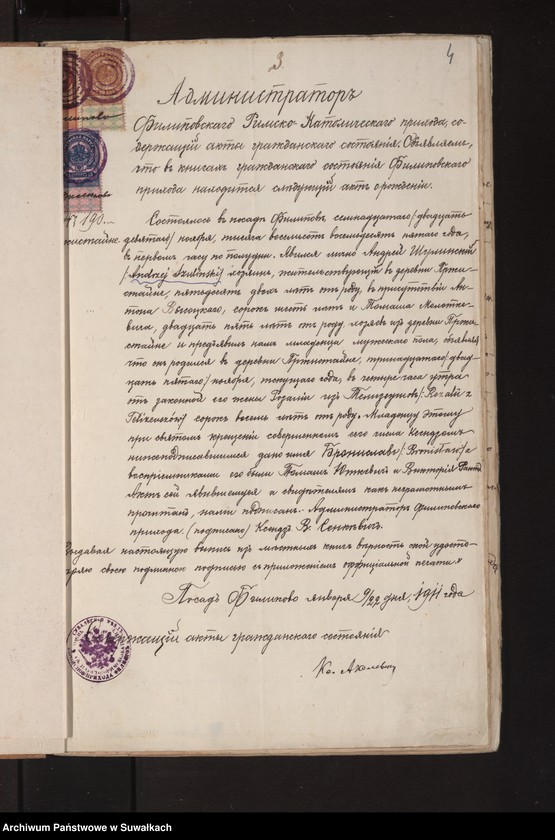 3
4
Администраторъ
Филиповскаго Римско-Католическаго прихода, со-
держащій акты гражданскаго состоянія. Объявляетъ,
что въ книгахъ гражданскаго состоянія Филиповскаго
прихода находится слѣдующій актъ о рожденіи.
№ 190
Состоялось въ посадѣ Филиповъ, семнадцатаго /двадцать
девятаго/ ноября, тысяча восемьсотъ восемьдесятъ пятаго года,
въ первомъ часу по полудни. Явился лично Андрей Шулинскій
/Andrzej Szuliński/ жительствующій въ деревни Пржи-
стайне, пятидесяти двухъ лѣтъ отъ роду, въ присутствіи Ан-
тона Высоцкаго, сорока шести лѣтъ и Томаша Молотке-
вича, двадцати пяти лѣтъ отъ роду, хозяевъ изъ деревни Пржи-
стайне и предъявилъ намъ младенца мужескаго пола, объявляя
что онъ родился въ деревни Пржистайне, тринадцатаго /двад-
цать пятаго/ ноября, текущаго года, въ четыре часа утра
отъ законной его жены Розаліи изъ /Rozalii z
сорокъ восемь лѣтъ отъ роду. Младенцу этому
при святомъ крещеніи совершенномъ его числа Ксендзомъ
нижеподписавшимся дано имя Брониславъ /Bronisław/ а
воспріемниками его были Томашъ Юткевичъ и Викторія
Актъ сей явившемуся и свидѣтелямъ какъ неграмотнымъ
прочтенъ, нами подписанъ. Администраторъ Филиповскаго
прихода (подписано) Ксендзъ В. Сенкевичъ.
Выдавая настоящую выпись изъ мѣстныхъ книгъ вѣрность оной удосто-
вѣряю своею подлинною подписью съ приложеніемъ оффиціальной печати.
Посадъ Филипово января 9/22 дня, 1911 года
держащій акты гражданскаго состоянія
Кс.
Archiwum Państwowe w Suwałkach